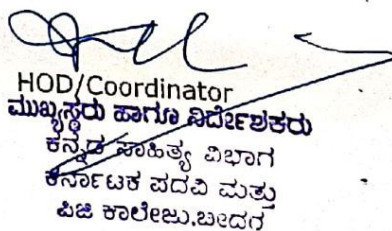 HOD/Coordinator
ಮುಖ್ಯಸ್ಥರು ಹಾಗೂ ನಿರ್ದೇಶಕರು
ಕನ್ನಡ ಸಾಹಿತ್ಯ ವಿಭಾಗ
ಕರ್ನಾಟಕ ಪದವಿ ಮತ್ತು
ಪಿಜಿ ಕಾಲೇಜು.ಬೀದರ